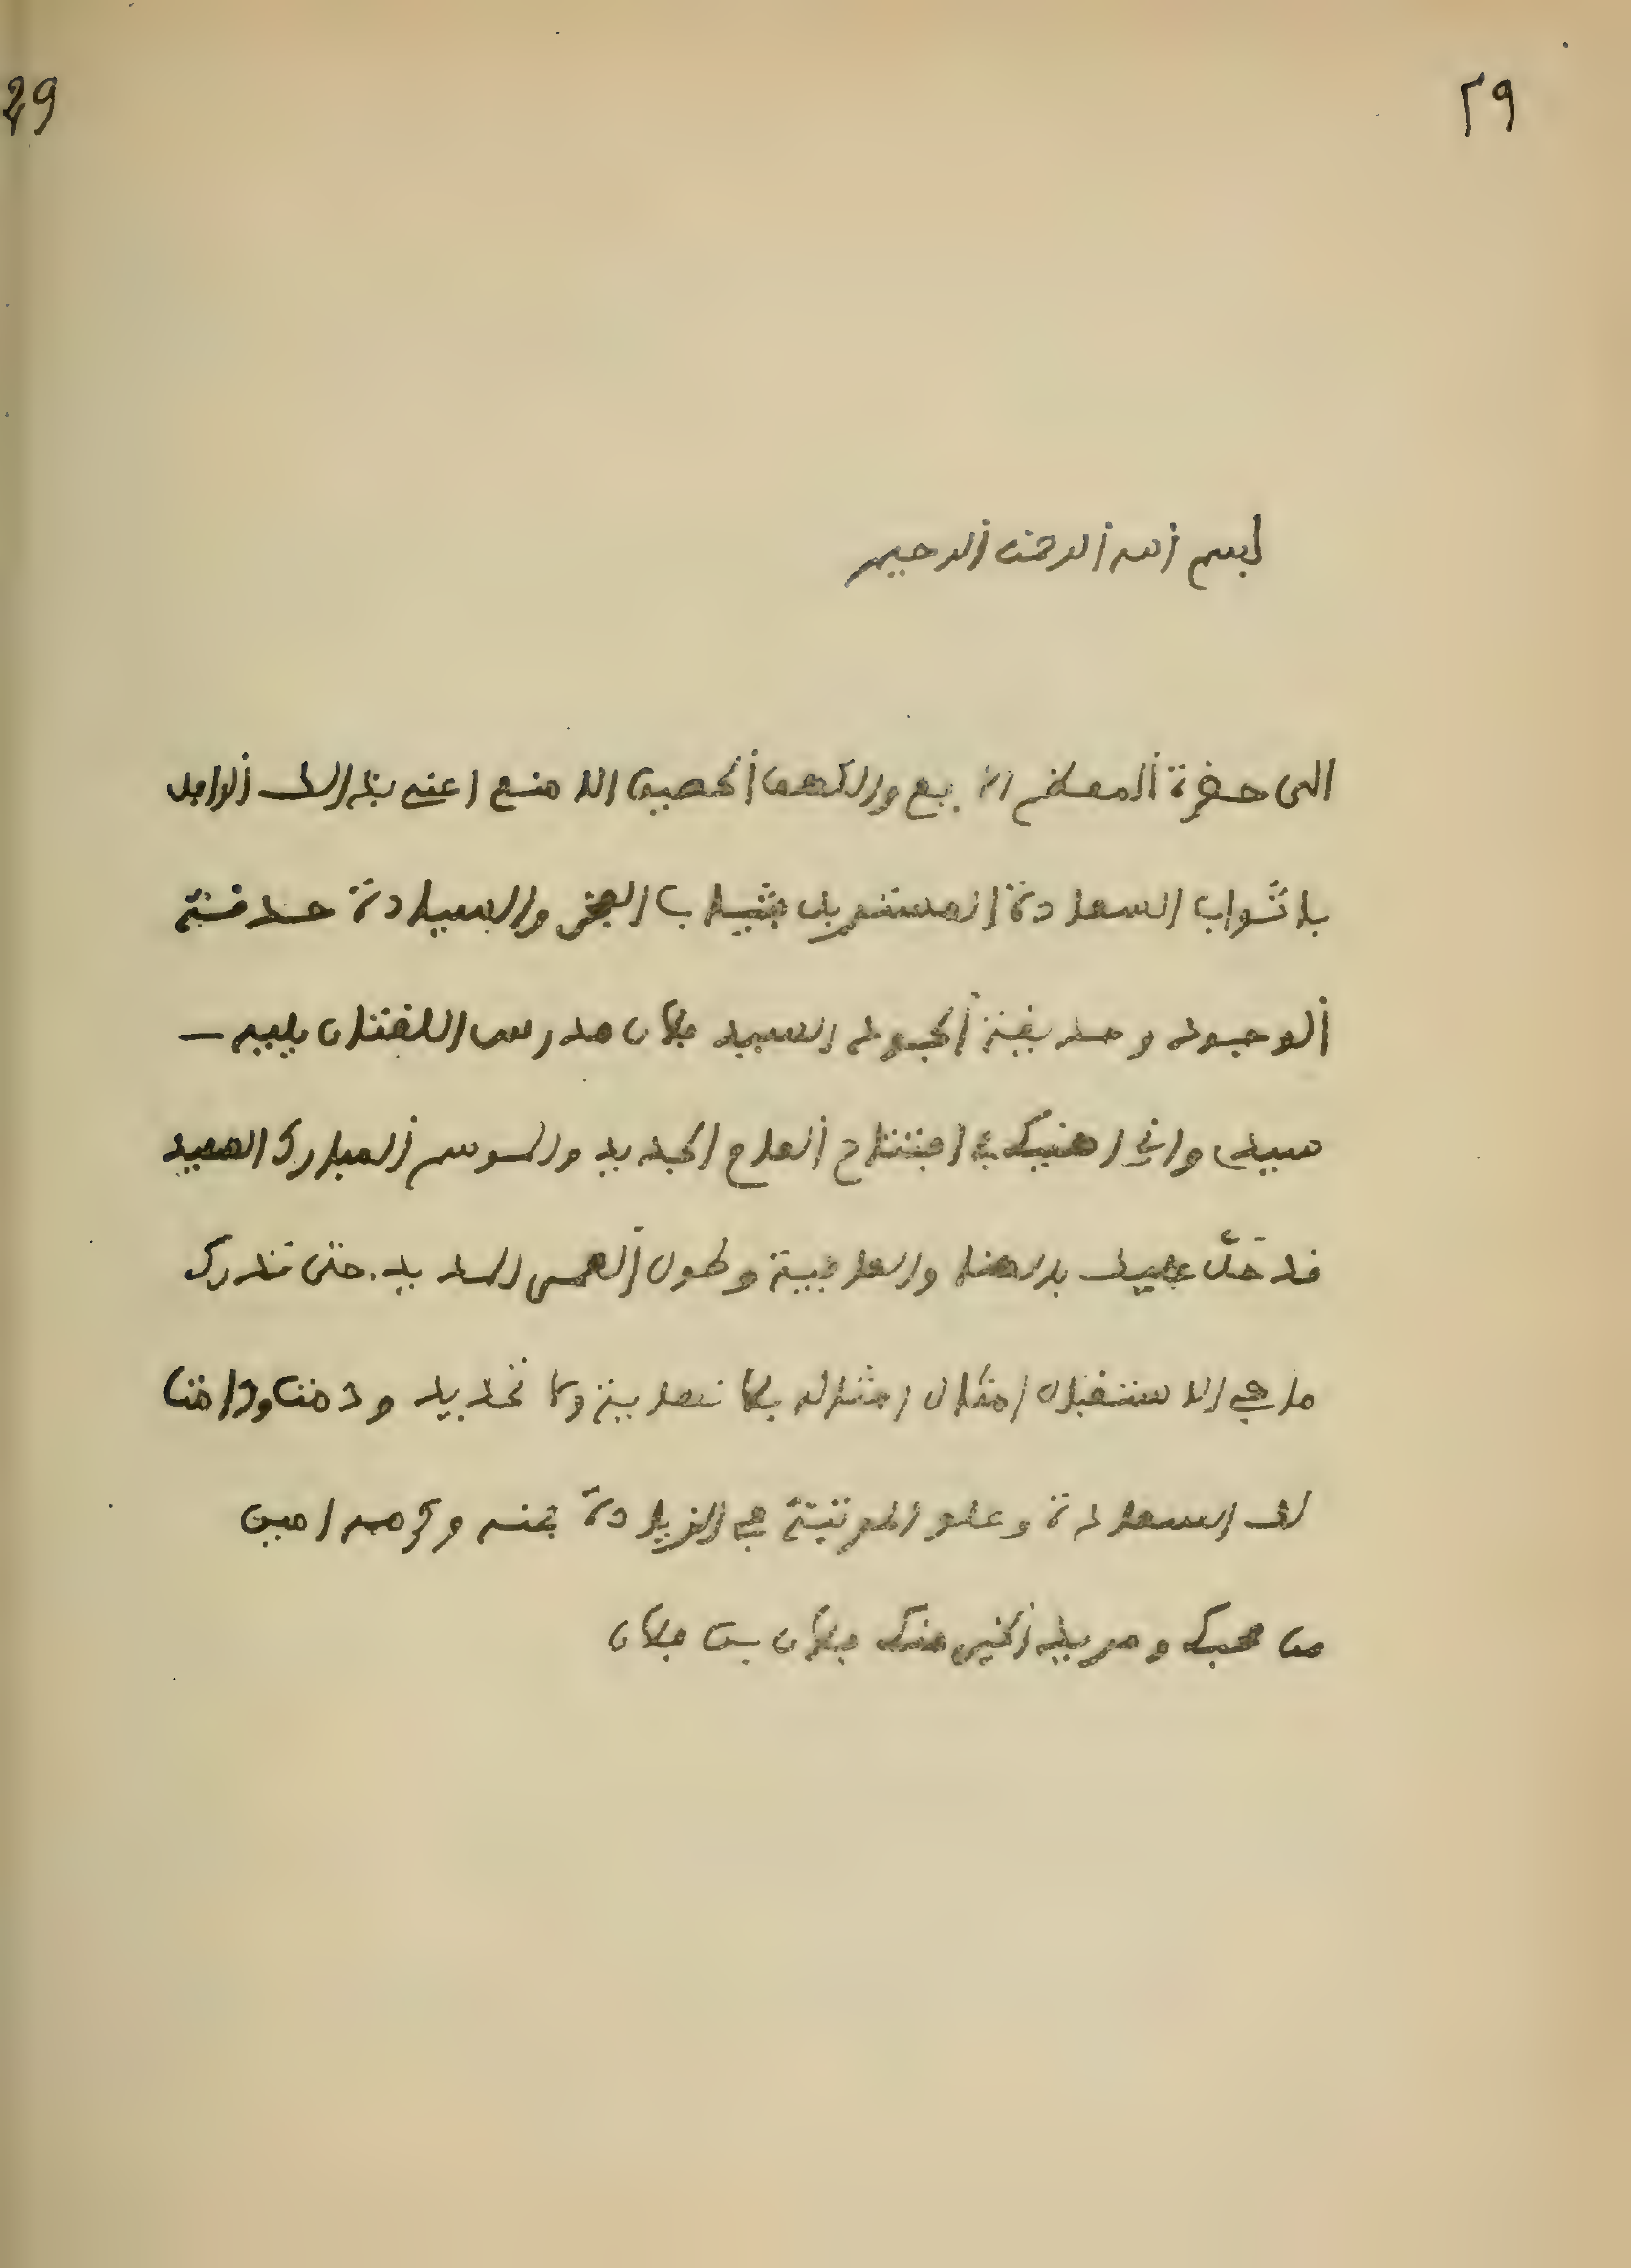 29 ٢٩
بسم الله الرحمن الرحيم
الى حضرة المعظم الرفيع والكهف الحصين الامنع اعني بذالك الرافل
باثواب السعادة المستسربل بثياب الفخر والسيادة حدقة
الوجود وحديقة الجود السيد فلان مدرس اللغتان
سيدي واني اهنيك في افتتاح العام الجديد والموسم المبارك السعيد
قد حلّ عليك بالهنا والعافية وطول العمر المديد حتى تدرك
ما في الاستقبال امثال امثاله بلا نهاية ولا تحديد ودمت ودامت
لك السعادة وعلو المرتبة في الزيادة بمنه وكرمه امين
من محبك ومريد الخير منك فلان بن فلان